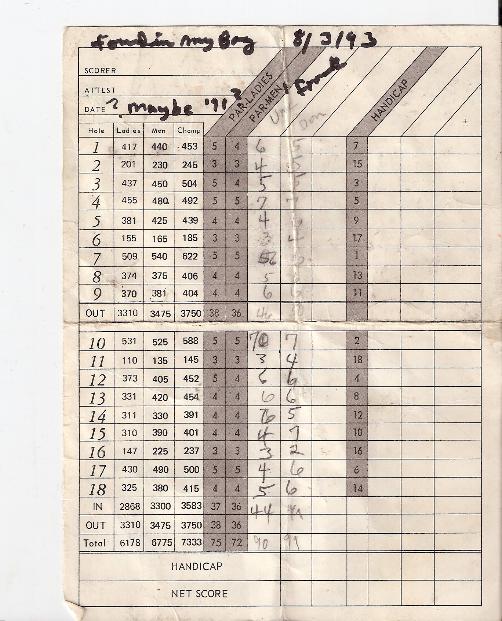 Found in My Bag 8/3/93
SCORER
ATTEST
DATE ? Maybe '91?
PAR-LADIES
PAR-MEN
Frank
Don
HANDICAP
Hole Ladies Men Champ
1 417 440 453 5 4 6 5 7
2 201 230 245 3 3 4 5 15
3 437 450 504 5 4 5 5 3
4 455 480 492 5 5 7 7 5
5 381 425 439 4 4 4 9
6 155 165 185 3 3 3 4 17
7 509 540 622 5 5 6 1
8 374 375 406 4 4 5 13
9 370 381 404 4 4 6 11
OUT 3310 3475 3750 38 36 46
10 531 525 588 5 5 7 2
11 110 135 145 3 3 3 4 18
12 373 405 452 5 4 6 6 4
13 331 420 454 4 4 6 6 8
14 311 330 391 4 4 5 12
15 310 390 401 4 4 4 7 10
16 147 225 237 3 3 3 2 16
17 430 490 500 5 5 4 6 6
18 325 380 415 4 4 5 6 14
IN 2868 3300 3583 37 36 44
OUT 3310 3475 3750 38 36
Total 6178 6775 7333 75 72 90 99
HANDICAP
NET SCORE